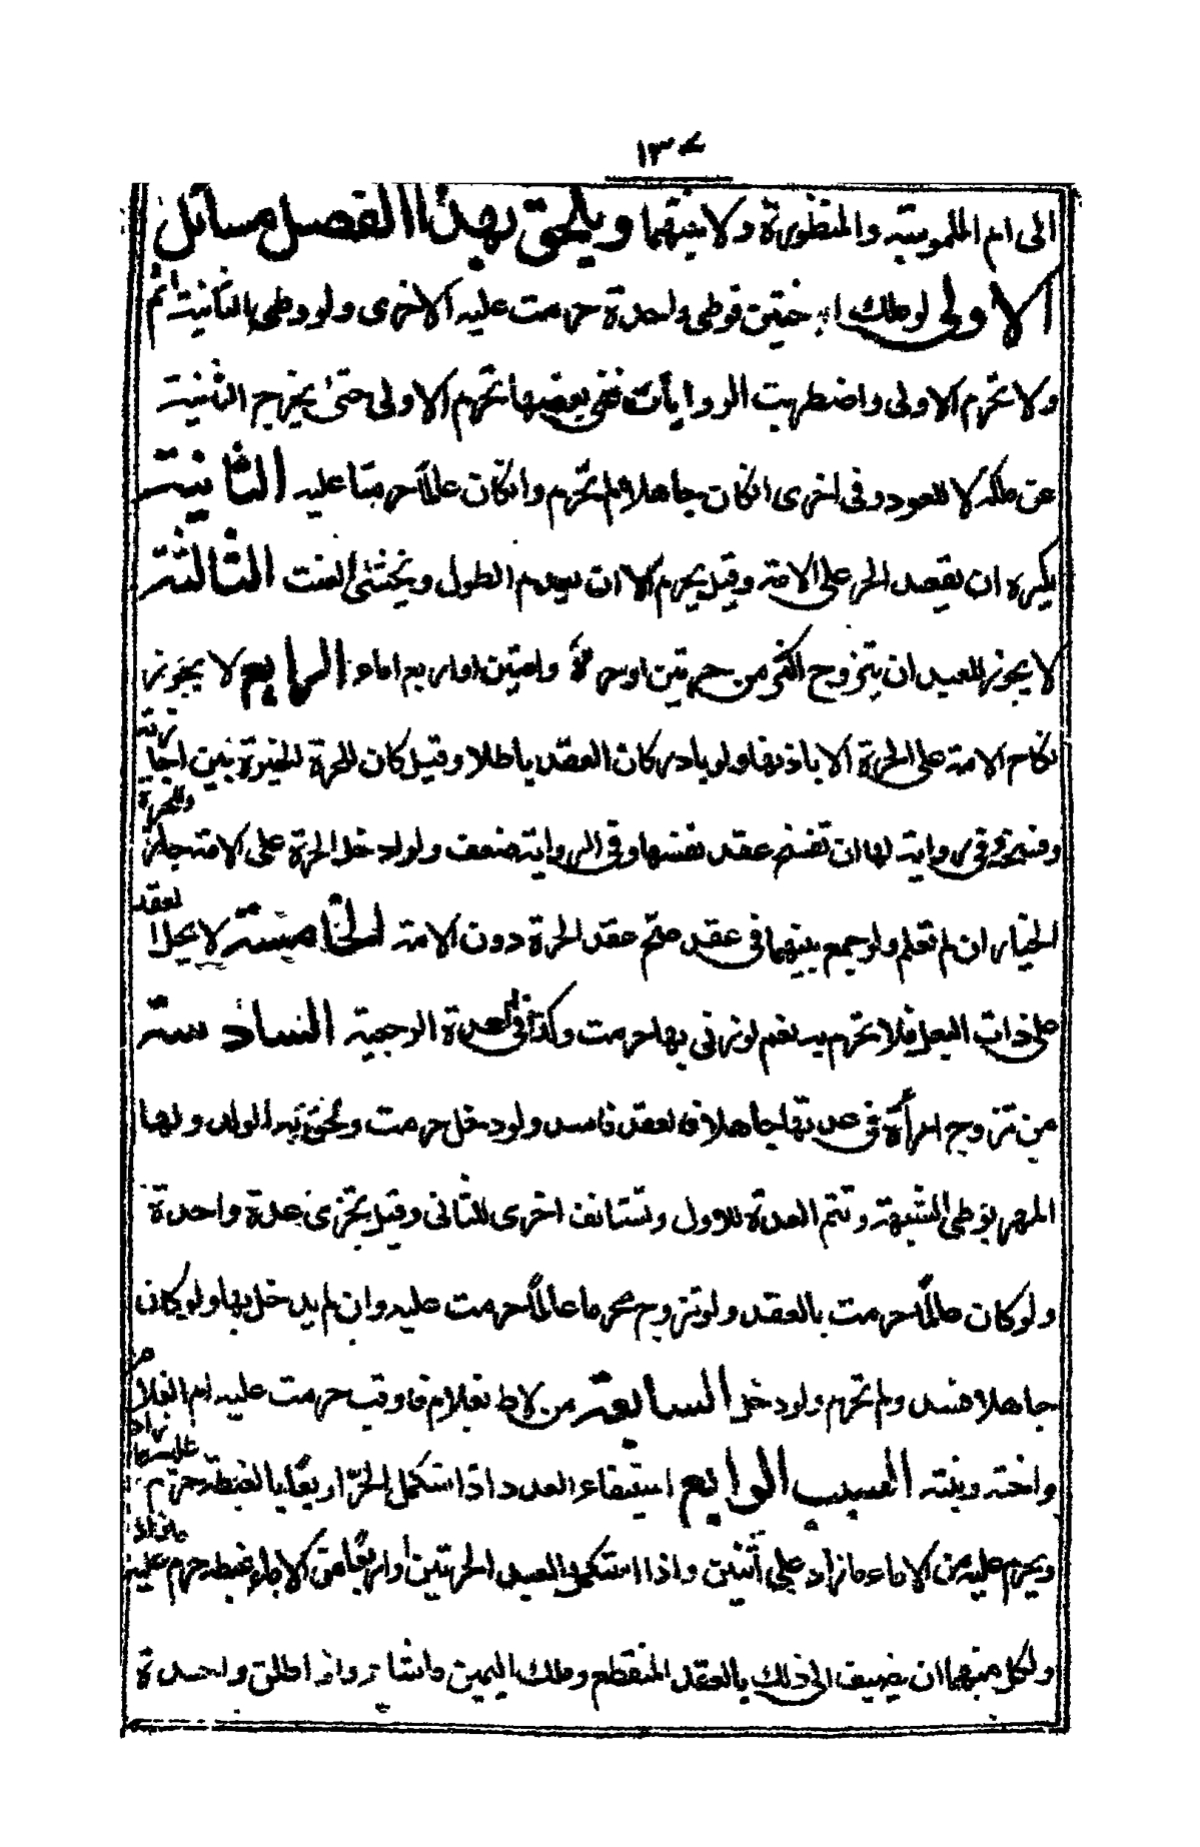 ١٣٧
الى ام الملموسة والمنظورة ولا بنتهما ويلحق بهذا الفصل مسائل
الاولى لو ملك اختين فوطى واحدة حرمت عليه الاخرى ولو وطى بالثانية اثم
ولا تحرم الاولى واضطربت الروايات ففي بعضها تحرم الاولى حتى يخرج الثانية
عن ملكه لا للعود وفى اخرى ان كان جاهلا لم تحرم وان كان عالماً حرمتا عليه الثانية
يكره ان يعقد الحر على الامة وقيل يحرم الا ان يعدم الطول ويخشى العنت الثالثة
لا يجوز للعبد ان يتزوج اكثر من حرتين او حرة وامتين او اربع اماء الرابع لا يجوز
نكاح الامة على الحرة الا باذنها ولو بادر كان العقد باطلا وقيل كان للحرة الخيرة بين اجازته
وفسخه وفى رواية لها ان تفسخ عقد نفسها وفى الرواية ضعف ولو ادخل الحرة على الامة جاز وللحرة
الخيار ان لم تعلم ولو جمع بينهما فى عقد صح عقد الحرة دون الامة الخامسة لا يحل العقد
على ذات البعل فلا تحرم به نعم لو زنى بها حرمت وكذا فى العدة الرجعية السادسة
من تزوج امرأة فى عدتها جاهلا فالعقد فاسد ولو دخل حرمت ولحق به الولد ولها
المهر بوطى الشبهة وتتم العدة للاول وتستانف اخرى للثانى وقيل يجزى عدة واحدة
ولو كان عالماً حرمت بالعقد ولو تزوج محرما عالماً حرمت عليه وان لم يدخل بها ولو كان
جاهلا فسد ولم تحرم ولو دخل السابعة من لاط بغلام فاوقب حرمت عليه ام الغلام
واخته وبنته السبب الرابع استيفاء العدد اذا استكمل الحر اربعاً بالغبطة حرم عليه ما زاد
ويحرم عليه من الاماء ما زاد على اثنتين واذا استكمل العبد الحرتين او اربعاً من الاماء غبطة حرم عليه ما زاد
ولكل منهما ان يضيف الى ذلك بالعقد المنقطع وملك اليمين ما شاء واذا طلق واحدة